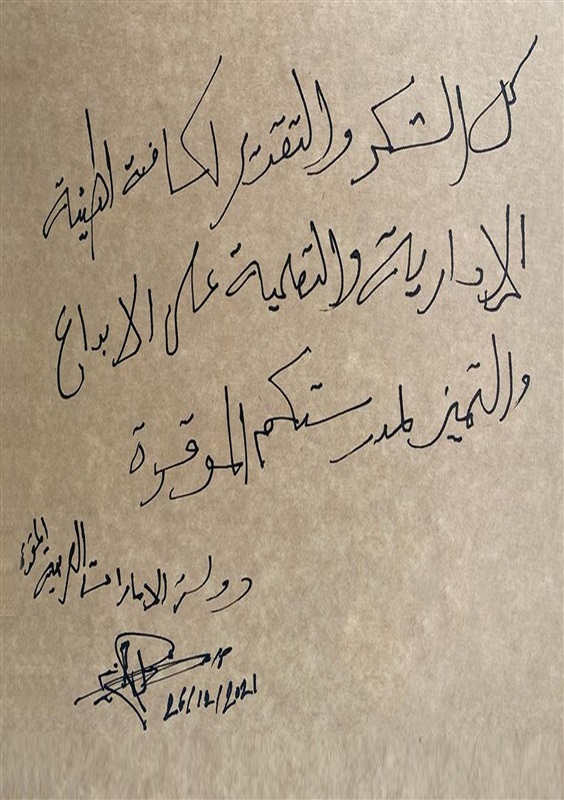 كل الشكر والتقدير لكافة الهيئة
الإدارية والتعلمية على الابداع
والتميز لمدرستكم الموقرة
دولة الامارات العربية المتحدة
26/12/2021